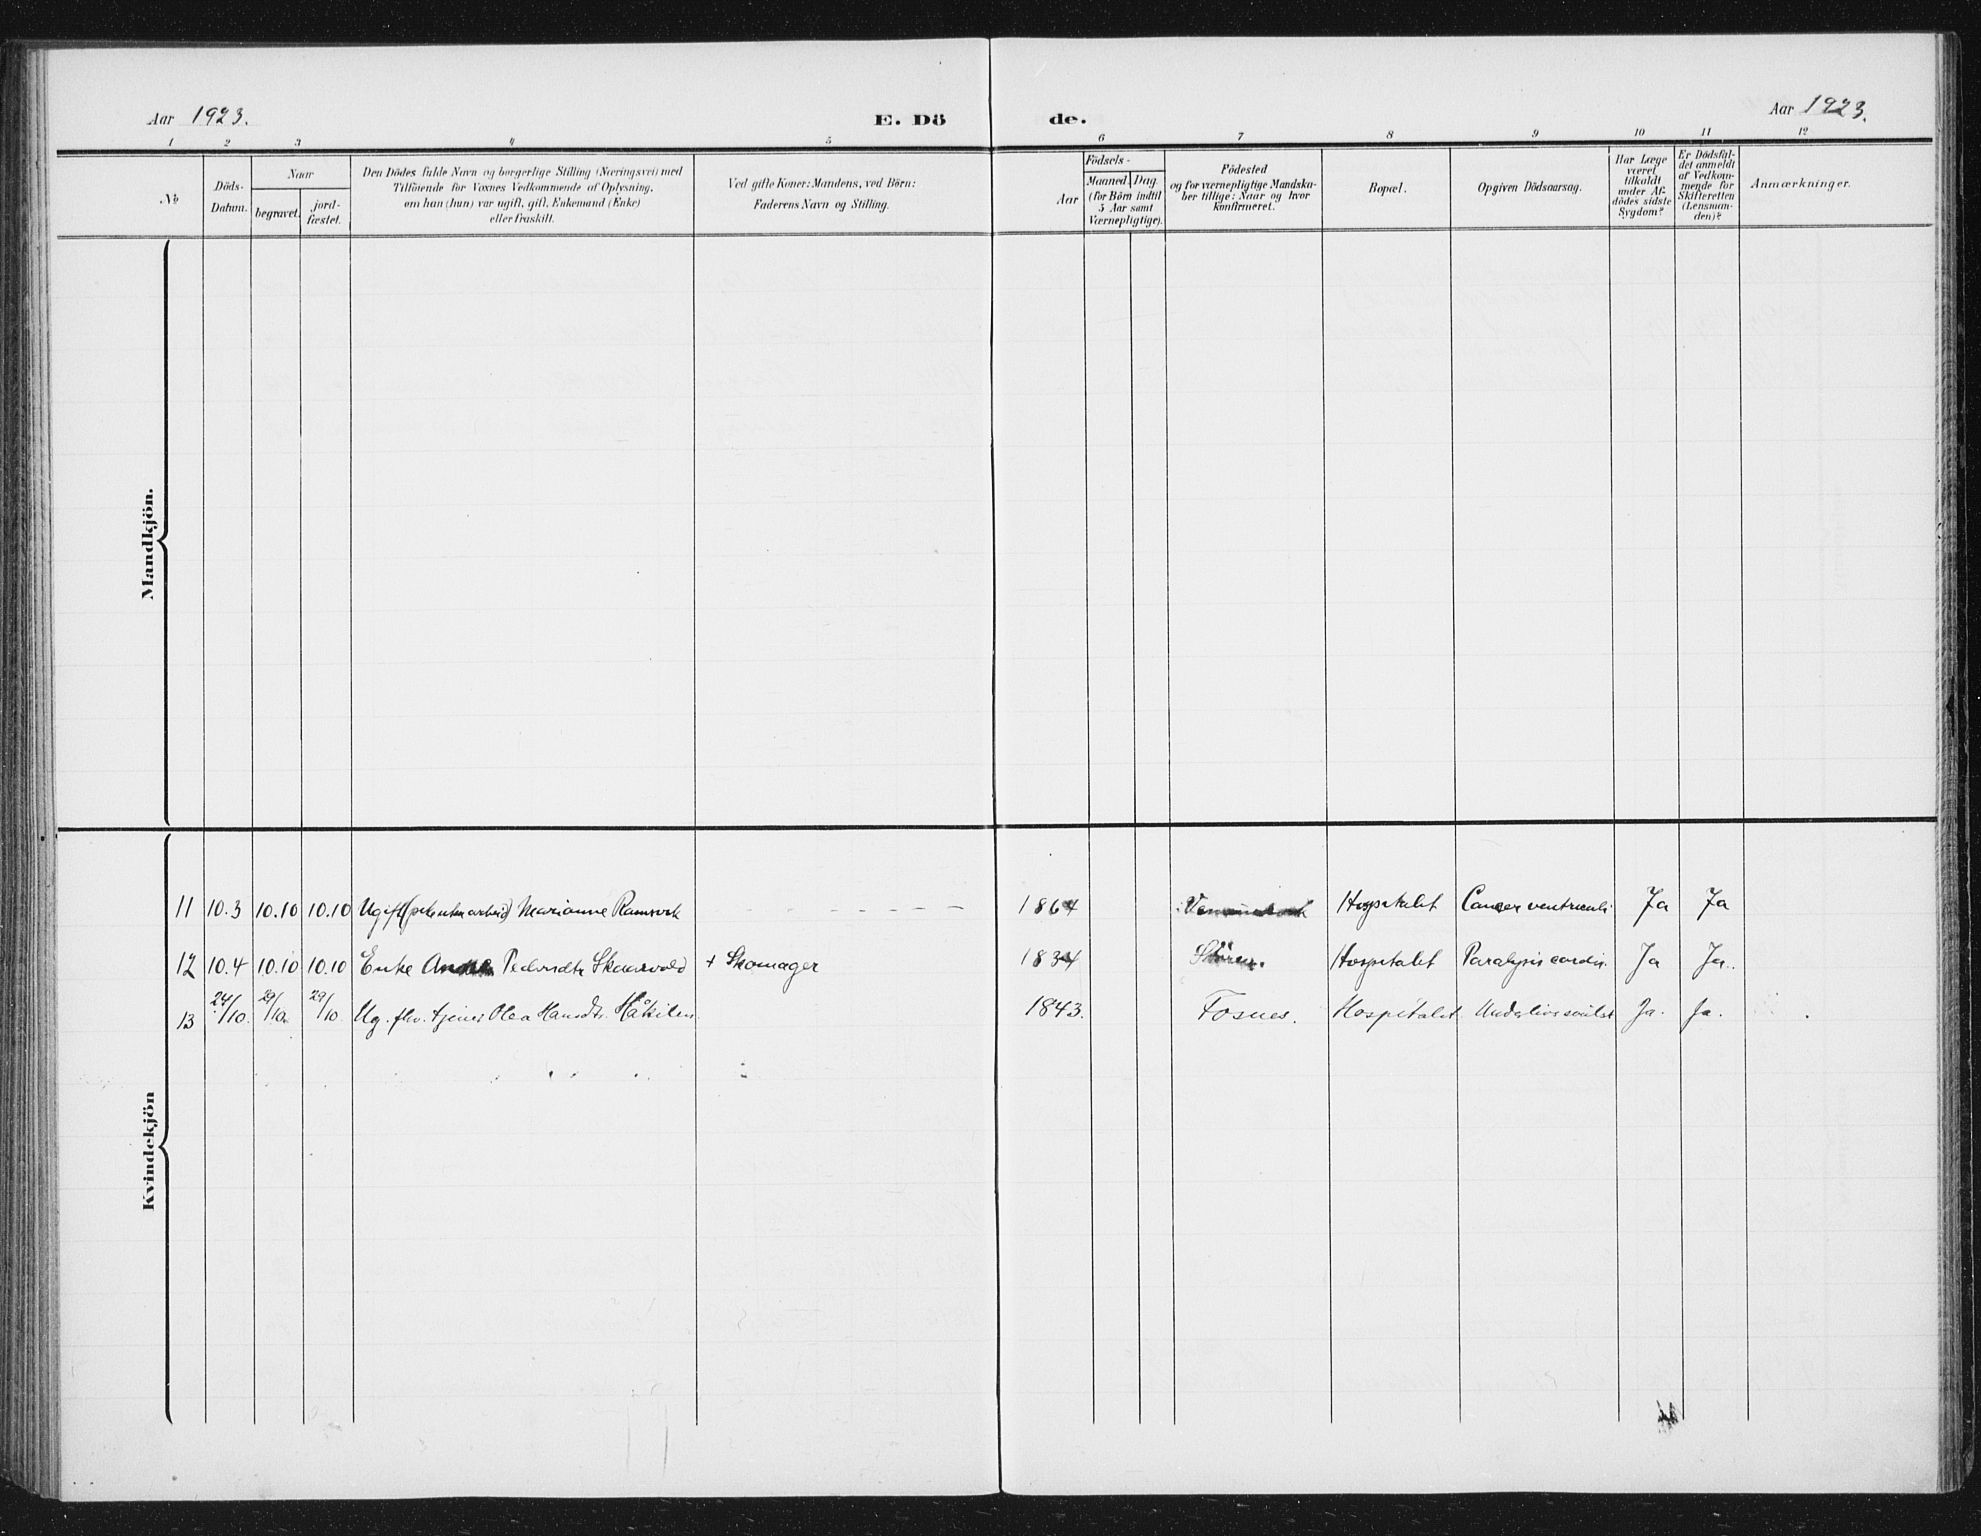 Aar 1923.
E. Dö
de.
Aar 1923.
1 2 3 4 5 6 7 8 9 10 11 12
No
Döds-
Datum.
Naar
begravet.
jord-
fæstet.
Den Dödes fulde Navn og borgerlige Stilling (Næringsvei) med
Tilföiende for Voxnes Vedkommende af Oplysning,
om han (hun) var ugift, gift, Enkemand (Enke)
eller fraskilt.
Ved gifte Koner: Mandens, ved Börn:
Faderens Navn og Stilling.
Födsels-
Aar
Maaned. Dag.
(for Börn indtil
5 Aar samt
Værnepligtige).
Födested
og for værnepligtige Mandska-
ber tillige: Naar og hvor
konfirmeret.
Bopæl.
Opgiven Dödsaarsag.
Har Læge
været
tilkaldt
under Af-
dödes sidste
Sygdom?
Er Dödsfal-
det anmeldt
af Vedkom-
mende for
Skifteretten
(Lensman-
den)?
Anmærkninger.
Mandkjön.
Kvindekjön
11 10.3 10.10 10.10 Ugift Marianne 1864 Hospitalet Cancer ventriculi Ja Ja
12 10.4 10.10 10.10 Enke Pedersdtr Skaarvold + Skomager 1834 Stören. Hospitalet Paralysis cordis Ja Ja.
13 24/10. 29/10. 29/10. Ug. fhv. tjener Olea Hansdtr. 1843. Fosnes. Hospitalet Ja. Ja.